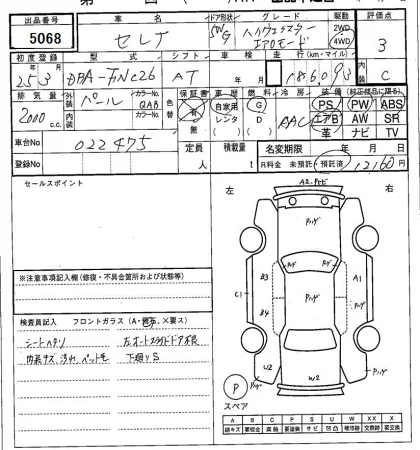 出品番号 5068
車名 セレナ
ドア形状 5W
グレード ハイウェイスター エアロモード
駆動 2WD 4WD
評価点 3
初度登録 25年3月
型式 DBA-FNC26
シフト AT
車検 年 月
走行(km・マイル) 186093
内装 C
排気量 2000 c.c.
外装 パール
カラーNo. QAB
内装
カラーNo.
色替
保証書 有 無
車歴 自家用 レンタ
燃料 G D
冷房 AAC
装備(純正部品に限る)
PS PW ABS
エアB AW SR
革 ナビ TV
車台No 022475
登録No
定員 人
積載量 t
名変期限 年 月 日
R料金 未預託 預託済 12160円
セールスポイント
※注意事項記入欄(修復・不具合箇所および状態等)
検査員記入 フロントガラス(A・飛石、×要ス)
シートヘタリ
左オートスライドドア不良
内装キズ、汚れ、ペット毛
下廻りS
左 右
A2
B3
B4
C1
A1
U2
W2
P
スペア
A B C P S U W X XX
線キズ 要板金 腐蝕 要塗装 サビ 凹凸 補修跡 交換跡 要交換